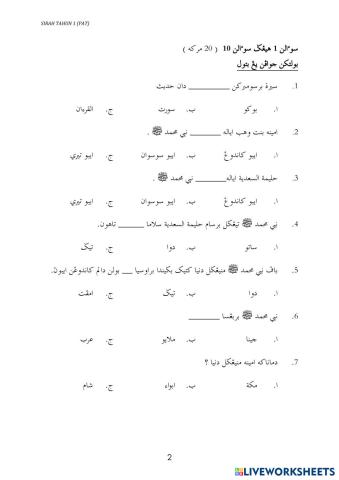 SIRAH TAHUN 1 (PAT)
سوءالن 1 هيڠݢ سوءالن 10 ( 20 مركه )
بولتكن جواڤن يڠ بتول
1. سيرة برسومبركن ________ دان حديث
ا. بوكو ب. سورت ج. القرءان
2. امينه بنت وهب اياله ______ نبي محمد ﷺ .
ا. ايبو كاندوڠ ب. ايبو سوسوان ج. ايبو تيري
3. حليمة السعدية اياله______ نبي محمد ﷺ .
ا. ايبو كاندوڠ ب. ايبو سوسوان ج. ايبو تيري
4. نبي محمد ﷺ تيڠݢل برسام حليمة السعدية سلاما _____ تاهون.
ا. ساتو ب. دوا ج. تيݢ
5. باڤ نبي محمد ﷺ منيڠݢل دنيا كتيك بݢيندا براوسيا __ بولن دالم كاندوڠن ايبون.
ا. دوا ب. تيݢ ج. امڤت
6. نبي محمد ﷺ بربڠسا ______
ا. چينا ب. ملايو ج. عرب
7. دماناكه امينه منيڠݢل دنيا ؟
ا. مكة ب. ابواء ج. شام
2
LIVEWORKSHEETS